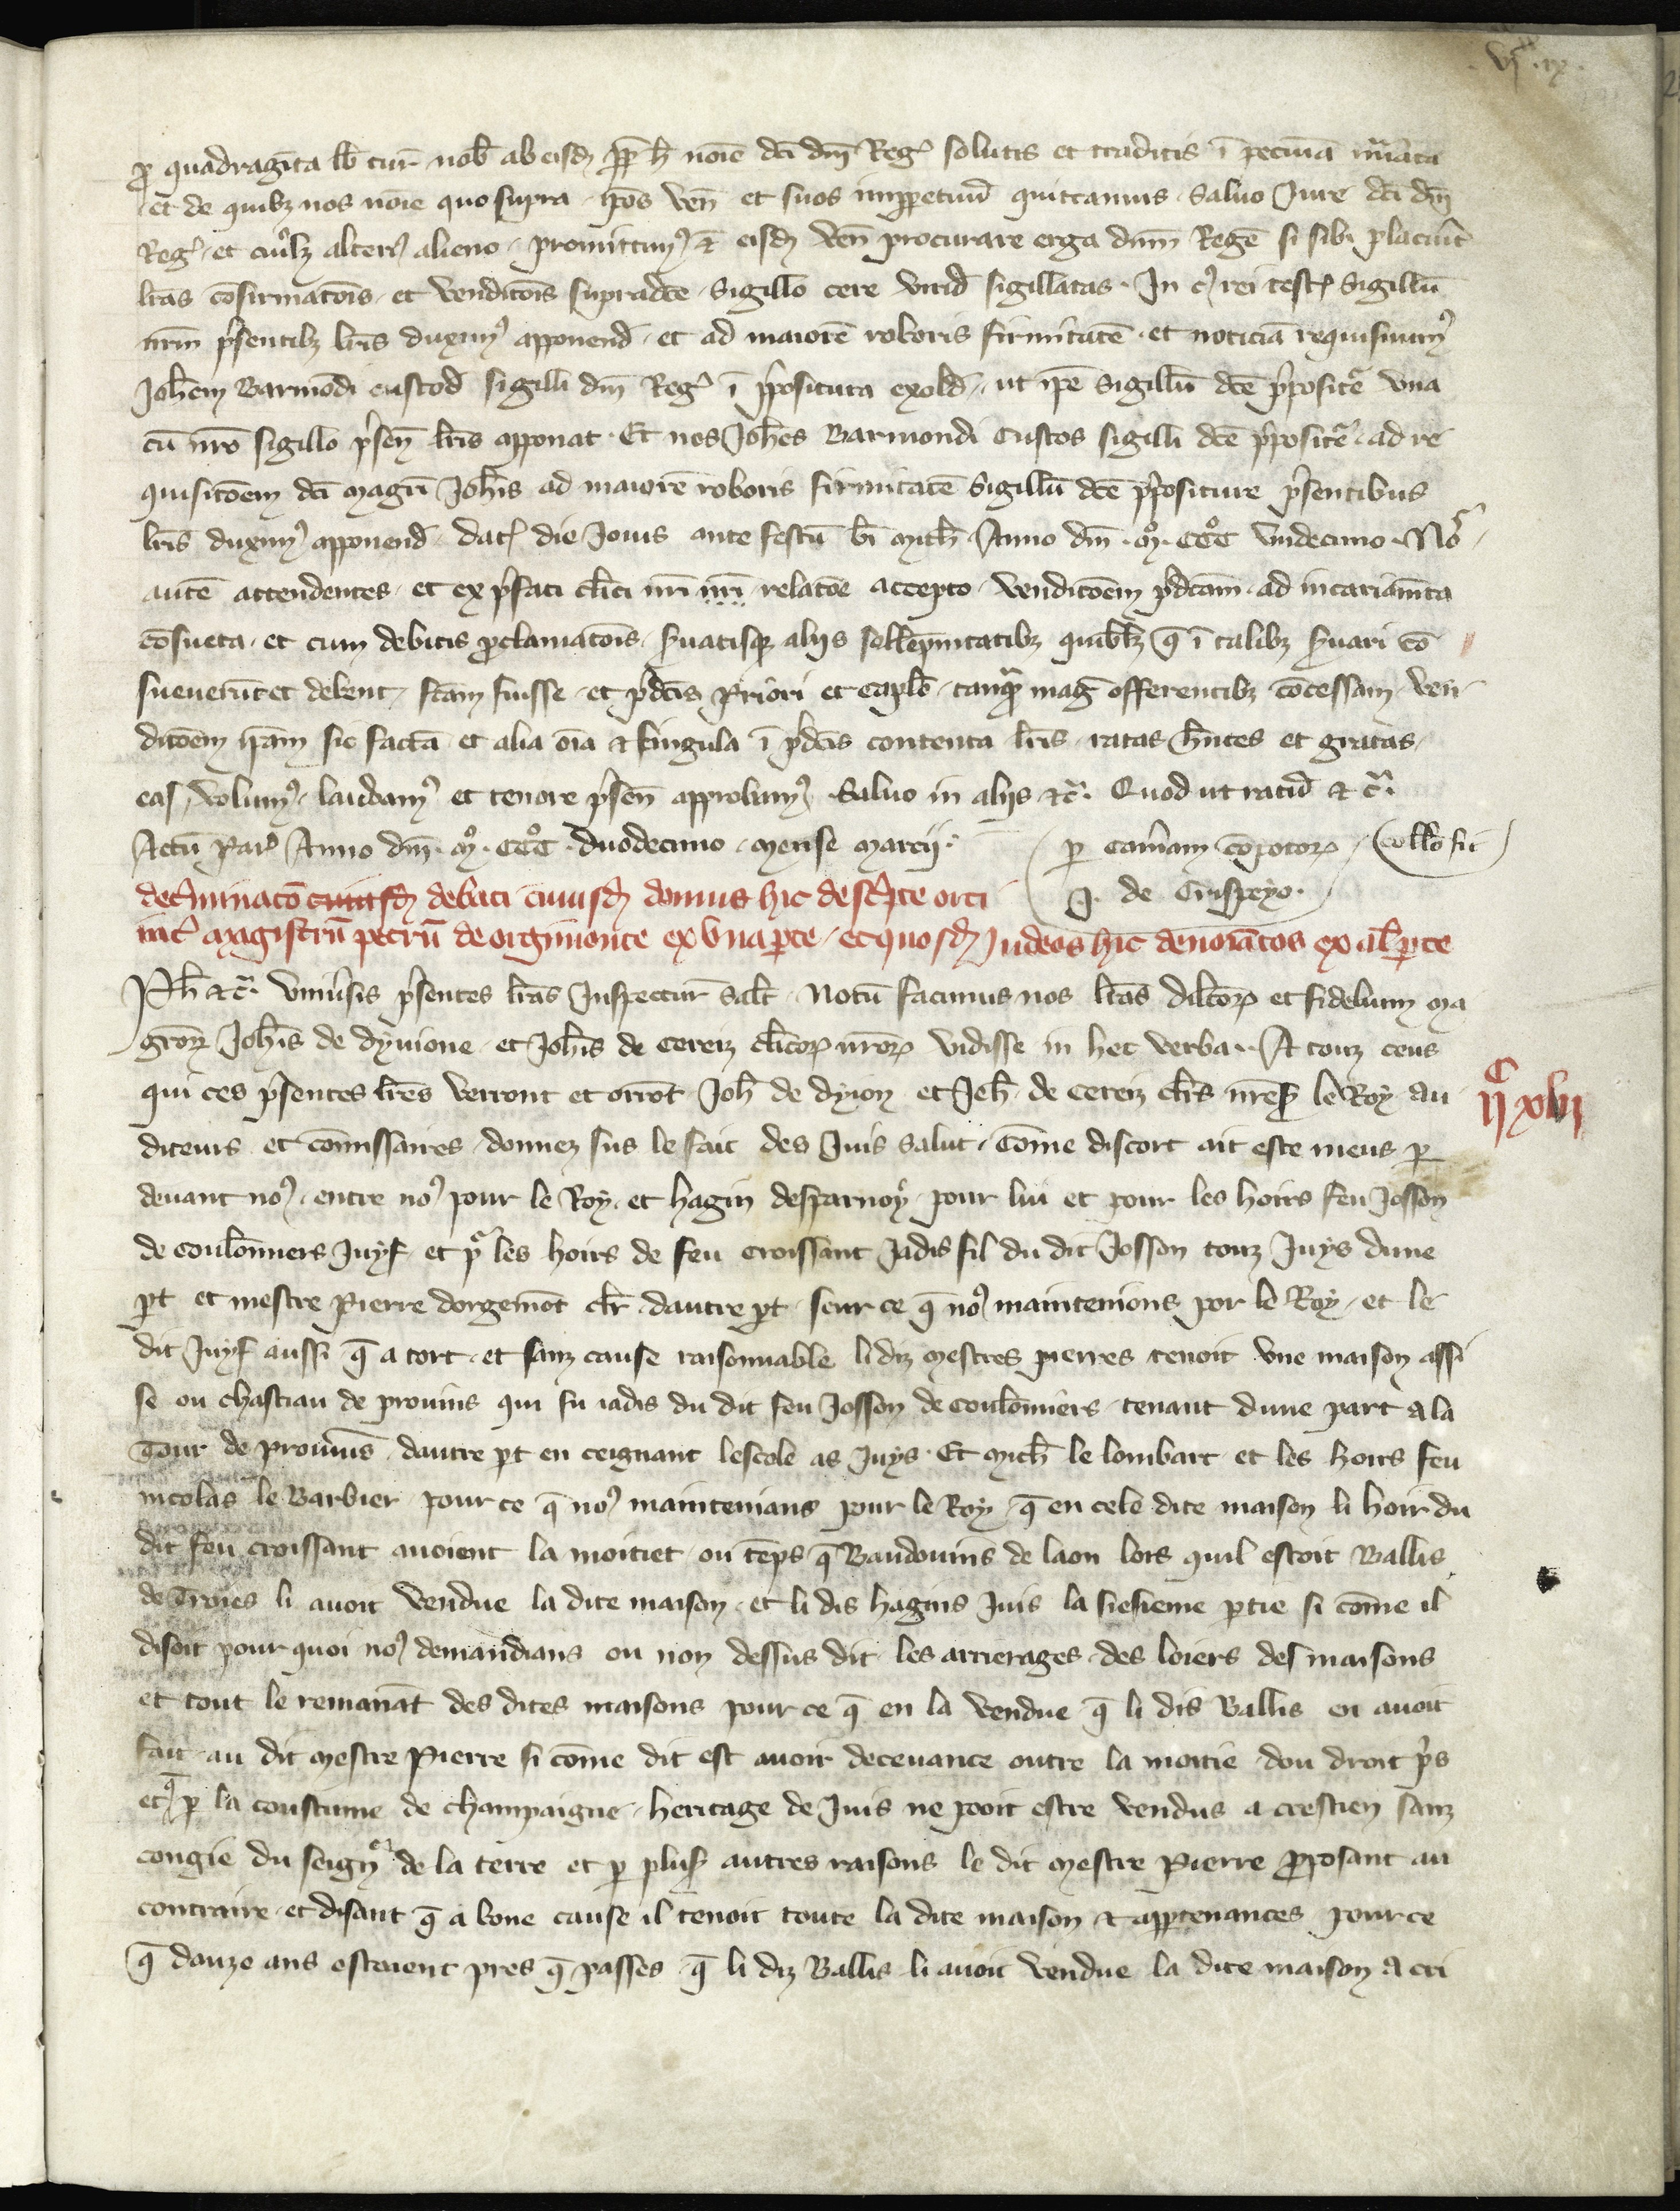 ꝓ quadragīta lb̄ tur̄ nob̄ ab eisdꝫ ꝓp̄ h̄ noīe dc̄i dn̄i Reg̾ solutis et traditis ī pecunia nūata
et de quibꝫ nos noīe quo supra ip̄os ven̄ et suos imꝑpetuū quittamus saluo Iure dc̄i dn̄i
Reg̾ et cuiꝰlꝫ alteriꝰ alieno promittimꝰ ⁊ eisdꝫ ven̄ procurare erga dn̄m Regē si sibi placuit
lr̄as cōfirmatōis et venditōis supradc̄e sigillo cere virid̄ sigillatas. In cꝰ rei test̾ Sigillū
nr̄m p̄sentibꝫ lr̄is duximꝰ apponend̄ et ad maiorē roboris firmitatē et noticiā requisiuimꝰ
Joh̄em Barmōdi custod̄ sigilli dn̄i Reg̾ ī p̄positura exold̄ ut ip̄e Sigillū dc̄e p̄positē vna
cū nr̄o sigillo p̄sen̄ lr̄is apponat. Et nos Joh̄es Barmondi Custos sigilli dc̄e p̄positē ad re
quisitōem dc̄i Magr̄i Joh̄is ad maiorē roboris firmitatē Sigillū dc̄e p̄positure p̄sentibus
lr̄is duximꝰ apponend̄ dat̾ die Jouis ante festū b̄i Mich̄ Anno dn̄i .Mͦ. CCCͦ vndecimo. Nos
autē attendentes et ex p̄fati cl̄ici nr̄i nr̄i relatōe accepto venditōem p̄dc̄am ad incariam̄ta
cōsueta et cum debitis ꝓclamatōis, s̾uatisqꝫ alijs sollēpnitatibꝫ quiblꝫ q̄ ī talibꝫ s̾uari cō
sueuerūt et debent, fc̄am fuisse et p̄dc̄is Priori et Capl̄o tanqᷓ mag̾ offerentibꝫ cōcessam ven
ditōem ip̄am sic factā et alia oīa ⁊ singula ī p̄dc̄is contenta lr̄is ratas hn̄tes et gratas
eas, volumꝰ, laudamꝰ et tenore p̄sen̄ approbamꝰ Saluo in alijs ⁊cᷓ. Quod ut ratū ⁊ cᷓ.
Actū Par̾ Anno dn̄i .Mͦ. CCCͦ. duodecimo mense Marcij. ꝑ cam̄am cōpotoꝝ (Coll̄o fit)
J. de Crispeyo.
det̾minatō cuiusdꝫ debati cuiusdꝫ domus hic desc̾pte orti
int̾ magistrū petrū de orgimonte ex vna ꝑte et quosdꝫ Iudeos hic denoīatos ex al̄ ꝑte
Ph̄ ⁊cᷓ. vniu̾sis p̄sentes lr̄as Inspectur̄ Sal̄t. Notū facimus nos lr̄as dil̄coꝝ et fidelium ma
gr̄oꝝ Joh̄is de dyuione et Joh̄is de Cereiz cl̄icoꝝ nr̄oꝝ vidisse in hec verba. A touz ceus
qui ces p̄sentes lr̄es verront et orrōt Joh̄ de dyion et Jeh̄ de Cereiz cl̄rs nr̄e sꝰ le Roy Au
diteurs et cōmissaires donnez sus le fait des Iuis salut. Cōme discort ait este meus ꝑ
deuant noꝰ entre noꝰ pour le Roy et hagin desparnoy pour lui et pour les hoirs feu Josson
de coulōmiers Juyf et pͬ les hoirs de feu croissant Jadis fil du dit Josson touz Juys dune
ꝑt et mestre Pierre dorgemōt cl̄r dautre ꝑt seur ce q̄ noꝰ maintenions por le Roy et le
dit Juyf aussi q̄ a tort et sanz cause raisonnable li diz mestres pierres tenoit vne maison assi
se ou chastiau de prouins qui fu iadis du dit feu Josson de coulōmiers tenant dune part a la
Tour de prouuins dautre ꝑt en ceignant lescole as Juys Et Mich̄ le lombart et les hoirs feu
nicolas le Barbier pour ce q̄ noꝰ maintenians pour le Roy q̄ en cele dite maison li hoir du
dit feu croissant auoient la moitiet ou tēps q̄ Baudouins de laon lors quil estoit Ballis
de Troies li auoit vendue la dite maison et li dis hagins Juis la siesieme ꝑtie si cōme il
disoit pour quoi noꝰ demandians ou non dessus dit les arrierages des loiers des maisons
et tout le remanāt des dites maisons pour ce q̄ en la vendue q̄ li dis Ballis en auoit
fait au dit mestre Pierre si cōme dit est auoit deceuance outre la moitie dou droit p̄s
et q̄ ꝑ la coustume de champaigne heritage de Juis ne pooit estre vendus a crestien sanz
congie du seignͬ de la terre et ꝑ plusꝰ autres raisons le dit mestre Pierre ꝓposant au
contraire et disant q̄ a bone cause il tenoit toute la dite maison ⁊ apꝑtenances pour ce
q̄ douze ans estoient pres q̄ passes q̄ li diz Ballis li auoit vendue la dite maison a cri
IIᶜ xlvi